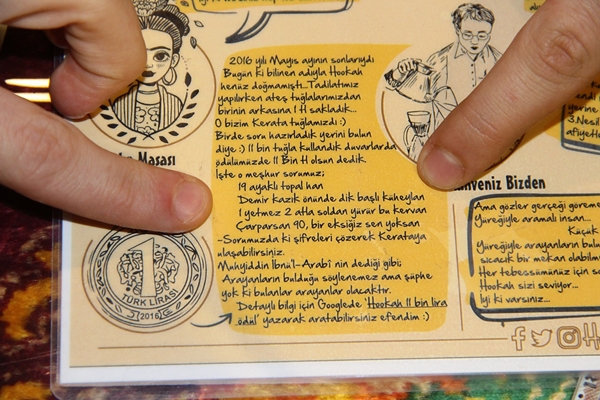 2016 yılı Mayıs ayının sonlarıydı
Bugün ki bilinen adıyla Hookah
henüz doğmamıştı...Tadilatımız
yapılırken ateş tuğlalarımızdan
birinin arkasına 1 tl sakladık...
O bizim Kerata tuğlamızdı :)
Birde soru hazırladık yerini bulun
diye :) 11 bin tuğla kullandık duvarlarda
ödülümüzde 11 Bin tl olsun dedik.
İşte o meşhur sorumuz;
19 ayaklı topal han
Demir kazık önünde dik başlı küheylan
1 yetmez 2 atla soldan yürür bu kervan
Çarparsan 90, bir eksiğiz sen yoksan
-Sorumuzda ki şifreleri çözerek Kerataya
ulaşabilirsiniz.
Muhyiddin İbnu'l-Arabî nin dediği gibi;
Arayanların bulduğu söylenemez ama şüphe
yok ki bulanlar arayanlar olacaktır.
Detaylı bilgi için Googlede 'Hookah 11 bin lira
ödül' yazarak aratabilirsiniz efendim :)
Masası
1
TÜRK LİRASI
2016
yerine
3.Nesil
afiyetle
Bizden
Ama gözler gerçeği göreme
Yüreğiyle aramalı insan...
Küçük
Yüreğiyle arayanların bulu
sıcacık bir mekan olabilme
Her tebessümünüz için so
Hookah sizi seviyor...
İyi ki varsınız...